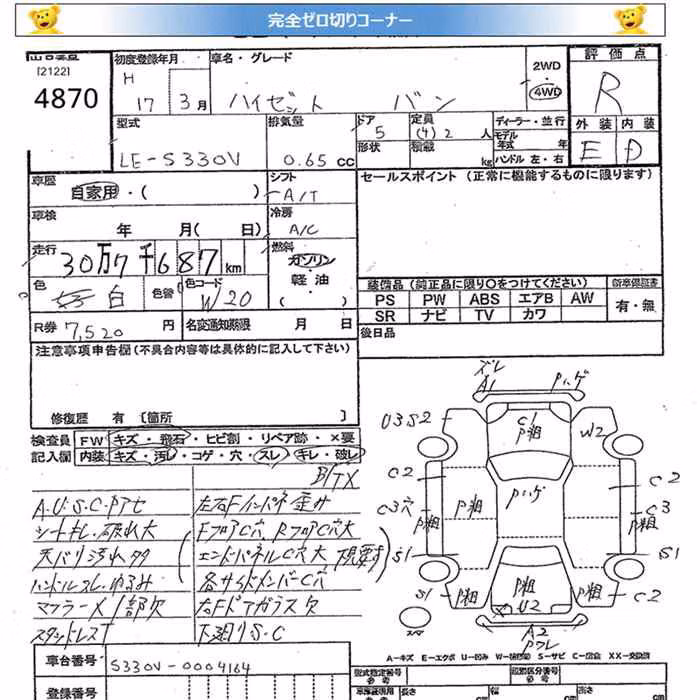 完全ゼロ切りコーナー
[2122]
4870
初度登録年月
H
17 3月
車名・グレード
ハイゼット バン
2WD
・
4WD
評価点
R
外装 内装
E D
型式
LE-S330V
排気量
0.65 cc
ドア
5
形状
定員
(4) 2 人
積載
kg
ディーラー・並行
モデル年式 年
ハンドル 左・右
車歴
自家用・( )
シフト
A/T
セールスポイント (正常に機能するものに限ります)
車検
年 月( 日)
冷房
A/C
走行
30万7千687km
燃料
ガソリン
・
軽油
色
白
色替
色コード
W20
装備品 (純正品に限り〇をつけてください)
新車保証書
PS PW ABS エアB AW
有・無
SR ナビ TV カワ
R券 7,520 円
名変通知期限 月 日
後日品
注意事項申告欄(不具合内容等は具体的に記入して下さい)
修復歴 有 [箇所 ]
検査員記入欄
FW キズ・飛石・ヒビ割・リペア跡・×要
内装 キズ・汚レ・コゲ・穴・スレ・キレ・破レ
A.U.S.C.Pアセ
シートキレ・破れ大
天バリ汚れ多
ハンドルスレ・ゆるみ
マフラーメ 1部欠
スタッドレスT
左右Fインパネ歪み
FフロアC穴 RフロアC穴大
エンドパネルC穴大 現要す
各サイドメンバーC穴
右Fドアガラス欠
下廻りS.C
ズレ
A1
Pハゲ
U3S2
C1
P粗
W2
C2
Pハゲ
C2
C3穴
P粗
P粗
C3
P粗
S1
S1
S1
P粗
P粗
U2
P粗
C2
A2
スマ
A-キズ E-エクボ U-凹み W-補修跡 S-サビ C-腐食 XX-交換済
車台番号
S330V-0004164
登録番号
型式指定番号
参考
類別区分番号
参考
長さ
cm
幅
cm
高さ
cm